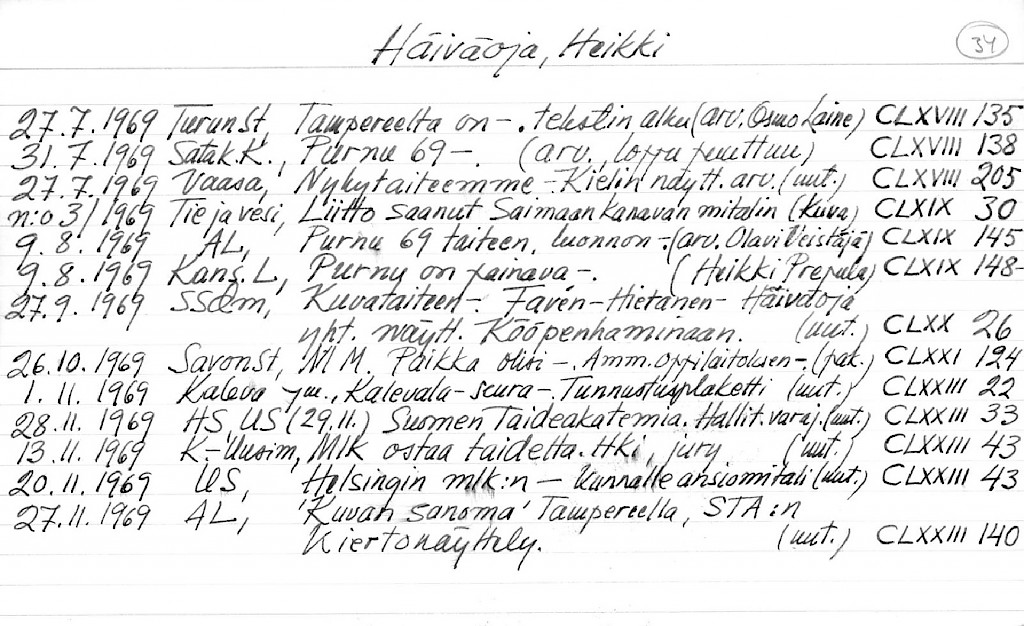 Häiväoja, Heikki
34
27.7.1969 TurunSt, Tampereelta on -. tekstin alku (arv. Osmo Laine) CLXVIII 135
31.7.1969 Satak.K., Purnu 69 -. (arv., loppu puuttuu) CLXVIII 138
27.7.1969 Vaasa, Nykytaiteemme - Kielin näytt. arv. (uut.) CLXVIII 205
n:o 3/1969 Tie ja vesi, Liitto saanut Saimaan kanavan mitalin (kuva) CLXIX 30
9.8.1969 AL, Purnu 69 taiteen, luonnon -. (arv. Olavi Veistäjä) CLXIX 145
9.8.1969 Kans.L, Purnu on painava -. (Heikki Prepula) CLXIX 148-
27.9.1969 SSdm, Kuvataiteen -. Favén - Hietanen - Häiväoja
yht. näytt. Kööpenhaminaan. (uut.) CLXX 26
26.10.1969 SavonSt, M M. Paikka olisi -. Amm.oppilaitoksen -. (pak.) CLXXI 194
1.11.1969 Kaleva ym., Kalevala-seura -. Tunnustusplaketti (uut.) CLXXIII 22
28.11.1969 HS, US (29.11.) Suomen Taideakatemia. Hallit. varaj. (uut.) CLXXIII 33
13.11.1969 K.-Uusim, Mlk ostaa taidetta. Hki, jury (uut.) CLXXIII 43
20.11.1969 US, Helsingin mlk:n - Kunnalle ansiomitali (uut.) CLXXIII 43
27.11.1969 AL, 'Kuvan sanoma' Tampereella, STA:n
Kiertonäyttely. (uut.) CLXXIII 140